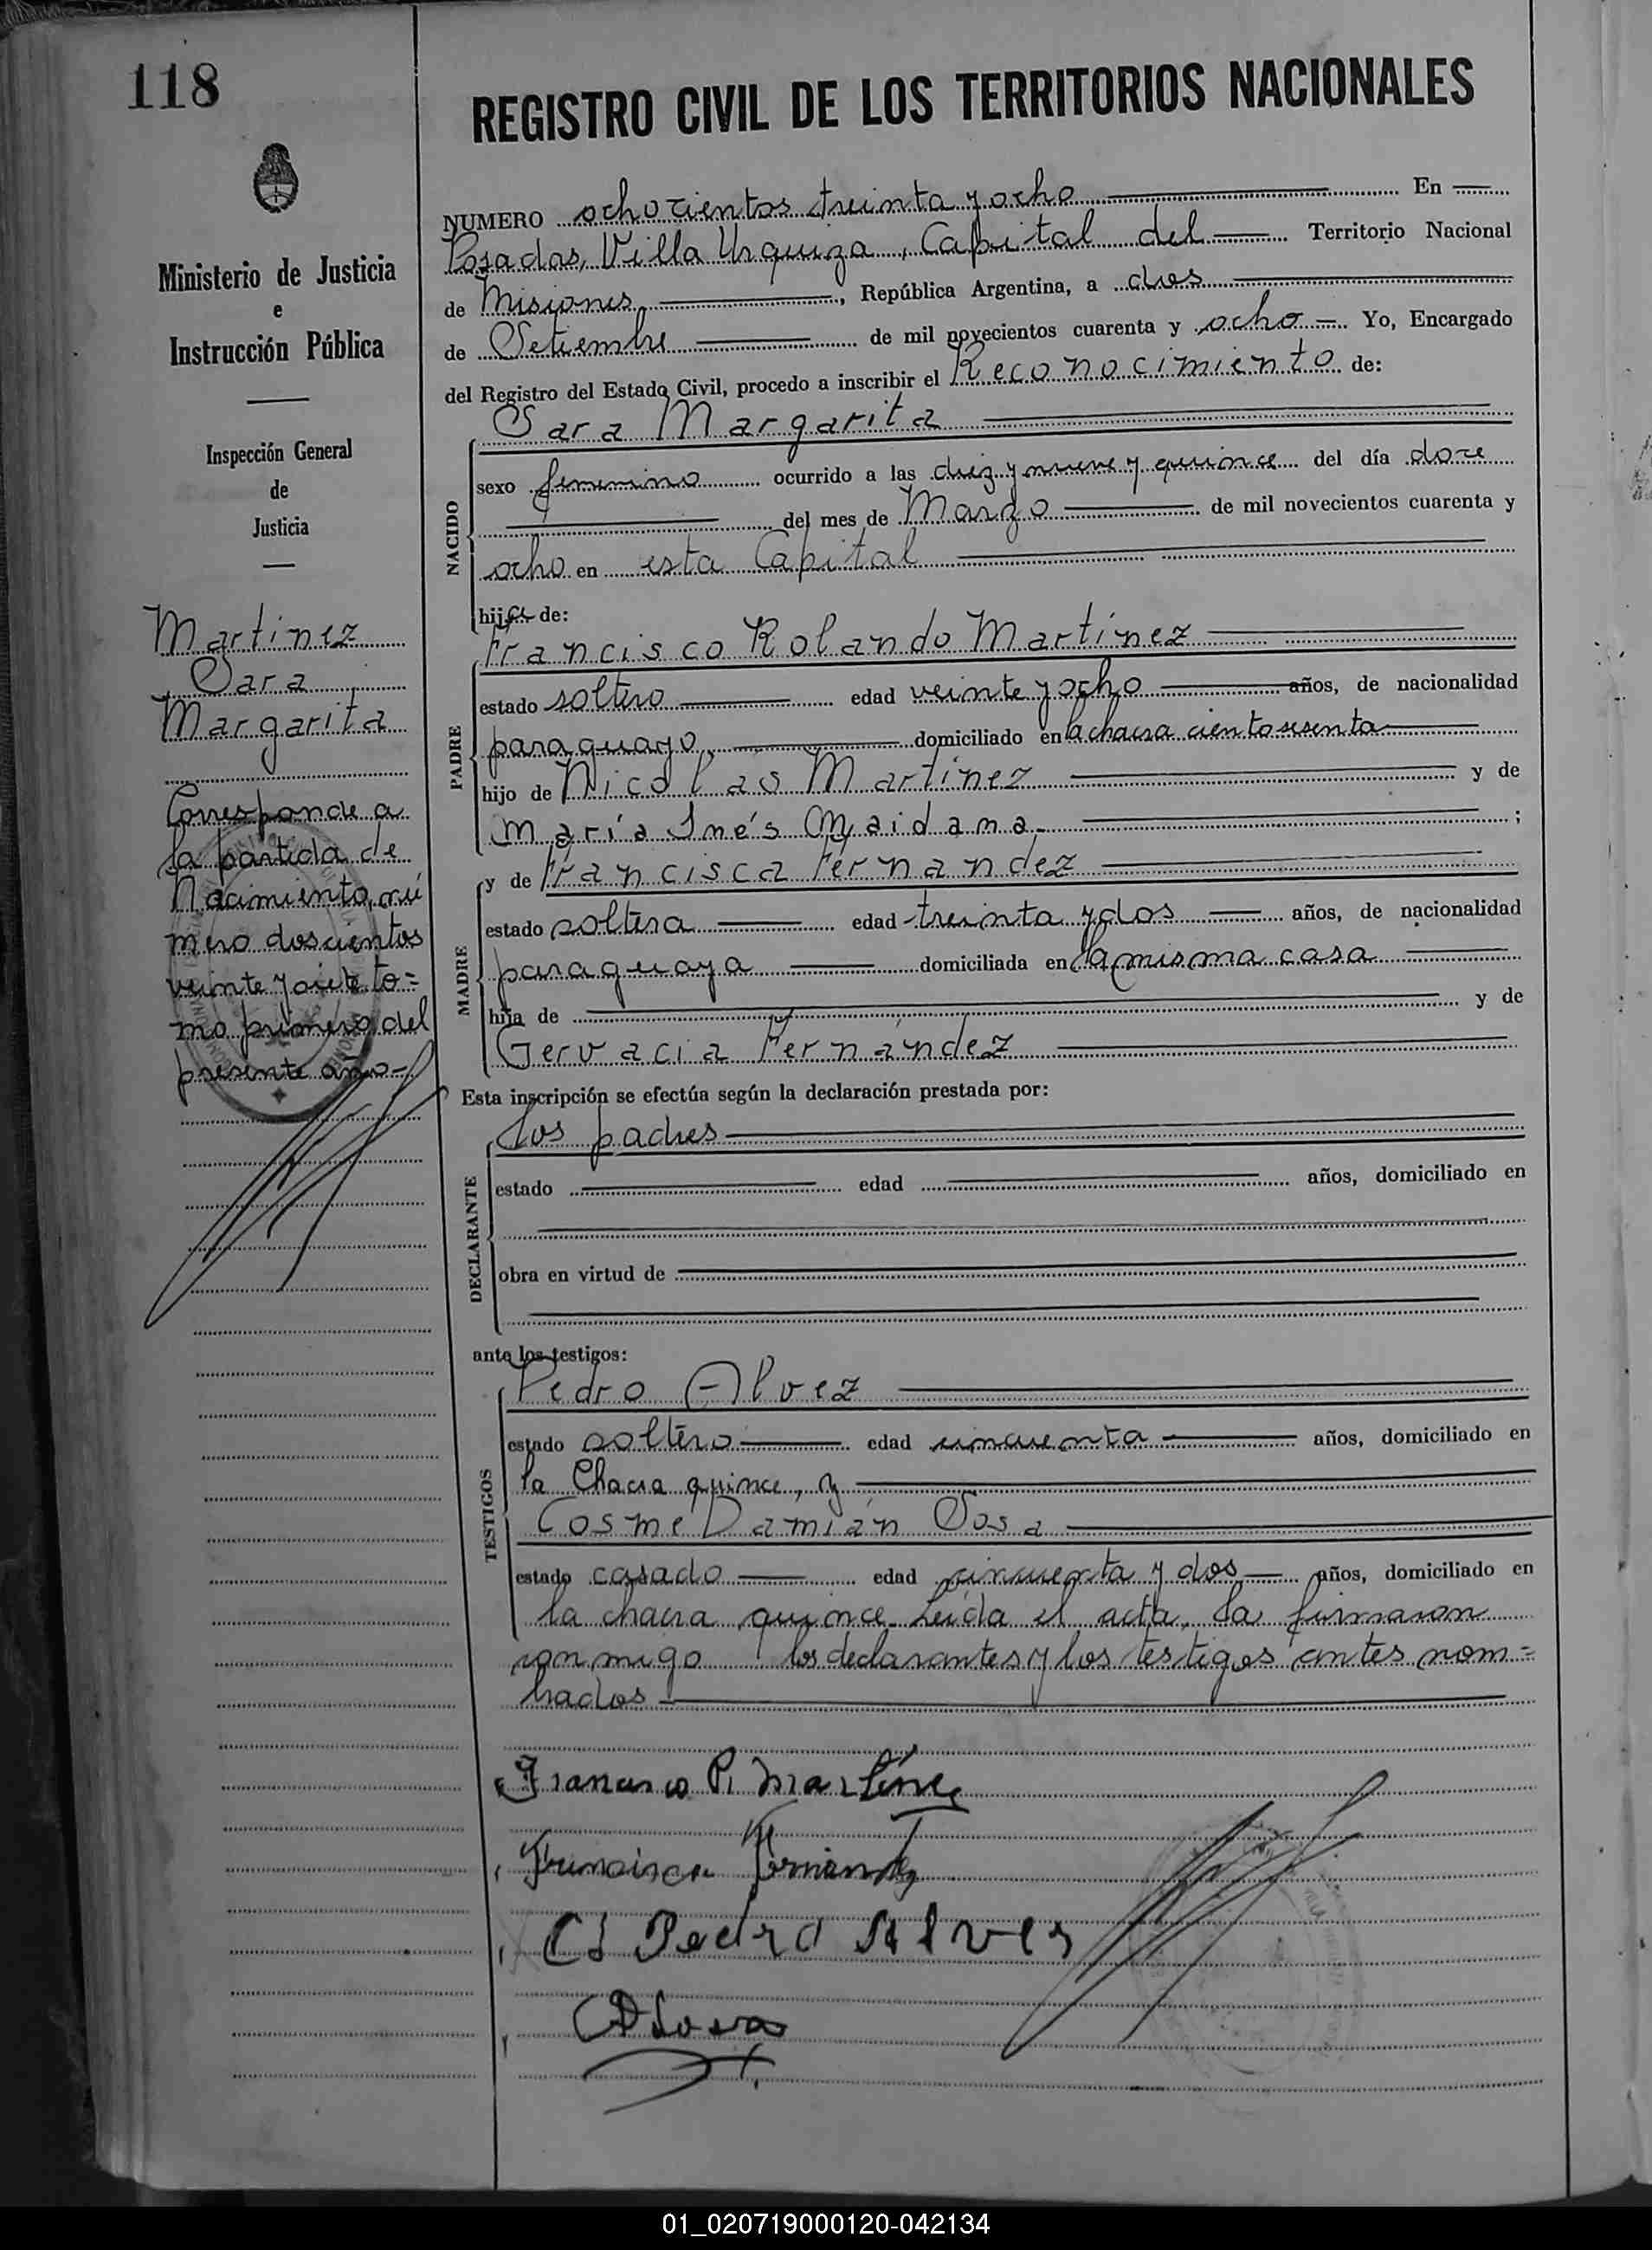 118
REGISTRO CIVIL DE LOS TERRITORIOS NACIONALES
Ministerio de Justicia
e
Instrucción Pública
Inspección General
de
Justicia
Martinez
Sara
Margarita
Corresponde a
la partida de
Nacimiento nú
mero doscientos
veinte y siete to=
mo primero del
presente año-
NUMERO ochocientos treinta y ocho En
Posadas, Villa Urquiza, Capital del Territorio Nacional
de Misiones, República Argentina, a dos
de Setiembre de mil novecientos cuarenta y ocho Yo, Encargado
del Registro del Estado Civil, procedo a inscribir el Reconocimiento de:
Sara Margarita
NACIDO
sexo femenino ocurrido a las diez y nueve y quince del día doce
del mes de Marzo de mil novecientos cuarenta y
ocho en esta Capital
hija de:
Francisco Rolando Martínez
PADRE
estado soltero edad veinte y ocho años, de nacionalidad
paraguayo, domiciliado en la chacra ciento sesenta
hijo de Nicolás Martínez y de
María Inés Maidana ;
y de Francisca Fernandez
MADRE
estado soltera edad treinta y dos años, de nacionalidad
paraguaya domiciliada en la misma casa
hija de y de
Gervacia Fernández
Esta inscripción se efectúa según la declaración prestada por:
los padres
DECLARANTE
estado edad años, domiciliado en
obra en virtud de
ante los testigos:
Pedro Alvez
TESTIGOS
estado soltero edad cincuenta años, domiciliado en
la Chacra quince, y
Cosme Damián Sosa
estado casado edad cincuenta y dos años, domiciliado en
la chacra quince. Leída el acta, la firmaron
conmigo los declarantes y los testigos antes nom=
brados
Francisco R. Martínez
Francisca Fernandez
Pedro Alves
CDSosa
01_020719000120-042134